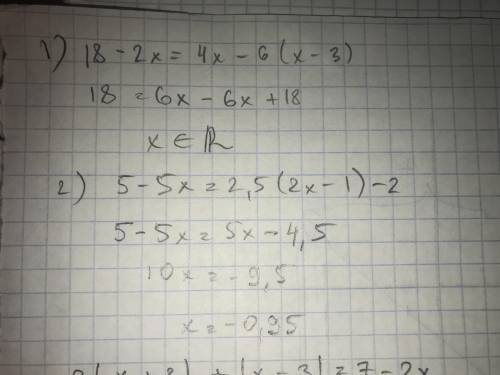 1) 18 - 2x = 4x - 6(x - 3)
18 = 6x - 6x + 18
x ∈ ℝ
2) 5 - 5x = 2,5(2x - 1) - 2
5 - 5x = 5x - 4,5
10x = -9,5
x = -0,95